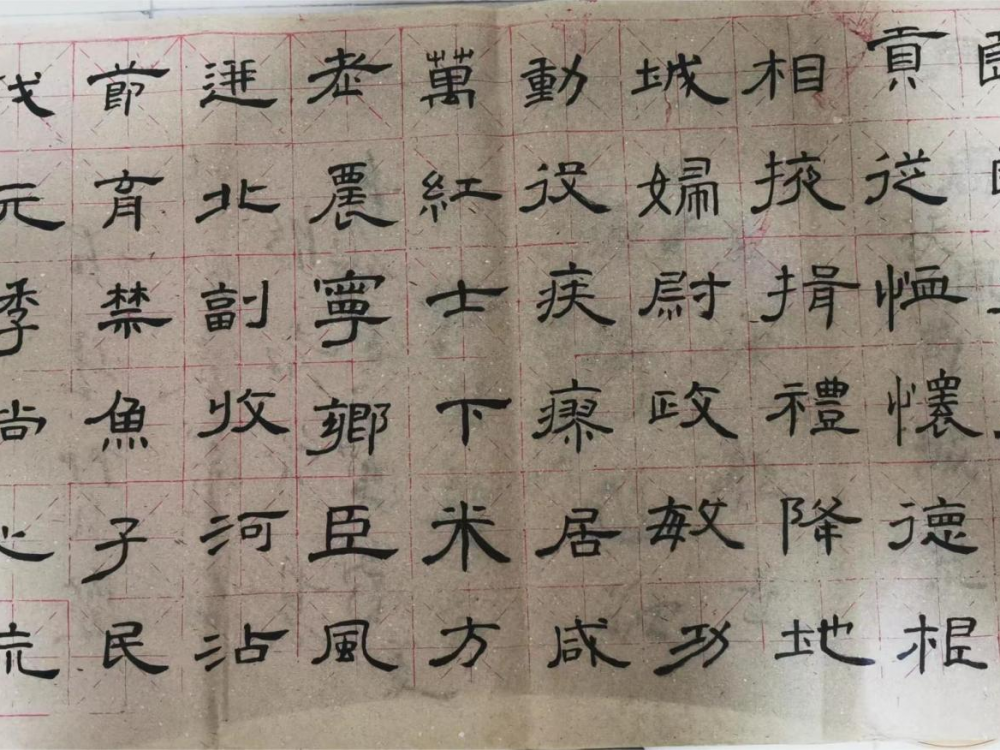 貢從恤懷德根
相掖揖禮降地
城婦尉政敏功
動役疾瘳居咸
萬紅士下米方
老農寧鄉臣風
進北副收河沾
節育禁魚子民
元季尚